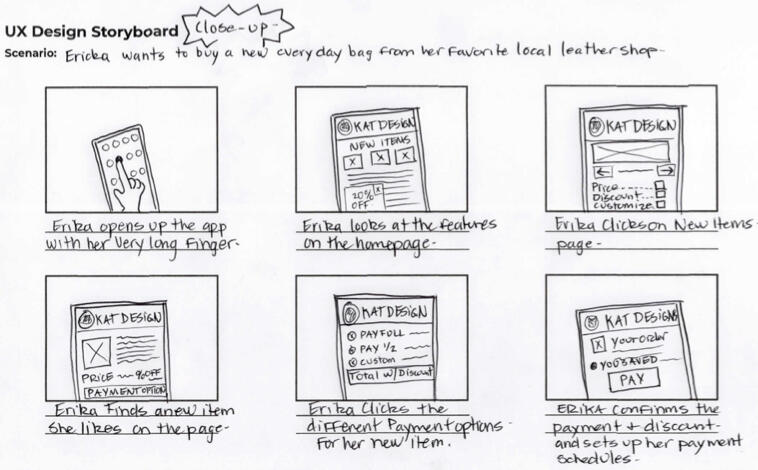 UX Design Storyboard close-up-
Scenario: Ericka wants to buy a new everyday bag from her favorite local leather shop-
KAT DESIGN
NEW ITEMS
X X X
20% X
OFF
KAT DESIGN
Price
Discount
customize
Erika opens up the app
with her very long finger-
Erika looks at the features
on the homepage-
Erika Clicks on New Items-
page-
KAT DESIGN
PRICE %OFF
PAYMENT OPTION
KAT DESIGN
PAY FULL
PAY 1/2
custom
Total w/ Discount
KAT DESIGNS
X your order
YOU SAVED
PAY
Erika Finds a new item
she likes on the page-
Erika Clicks the
different Payment options-
for her new item.
ERIKA confirms the
payment + discount-
and sets up her payment
schedules-